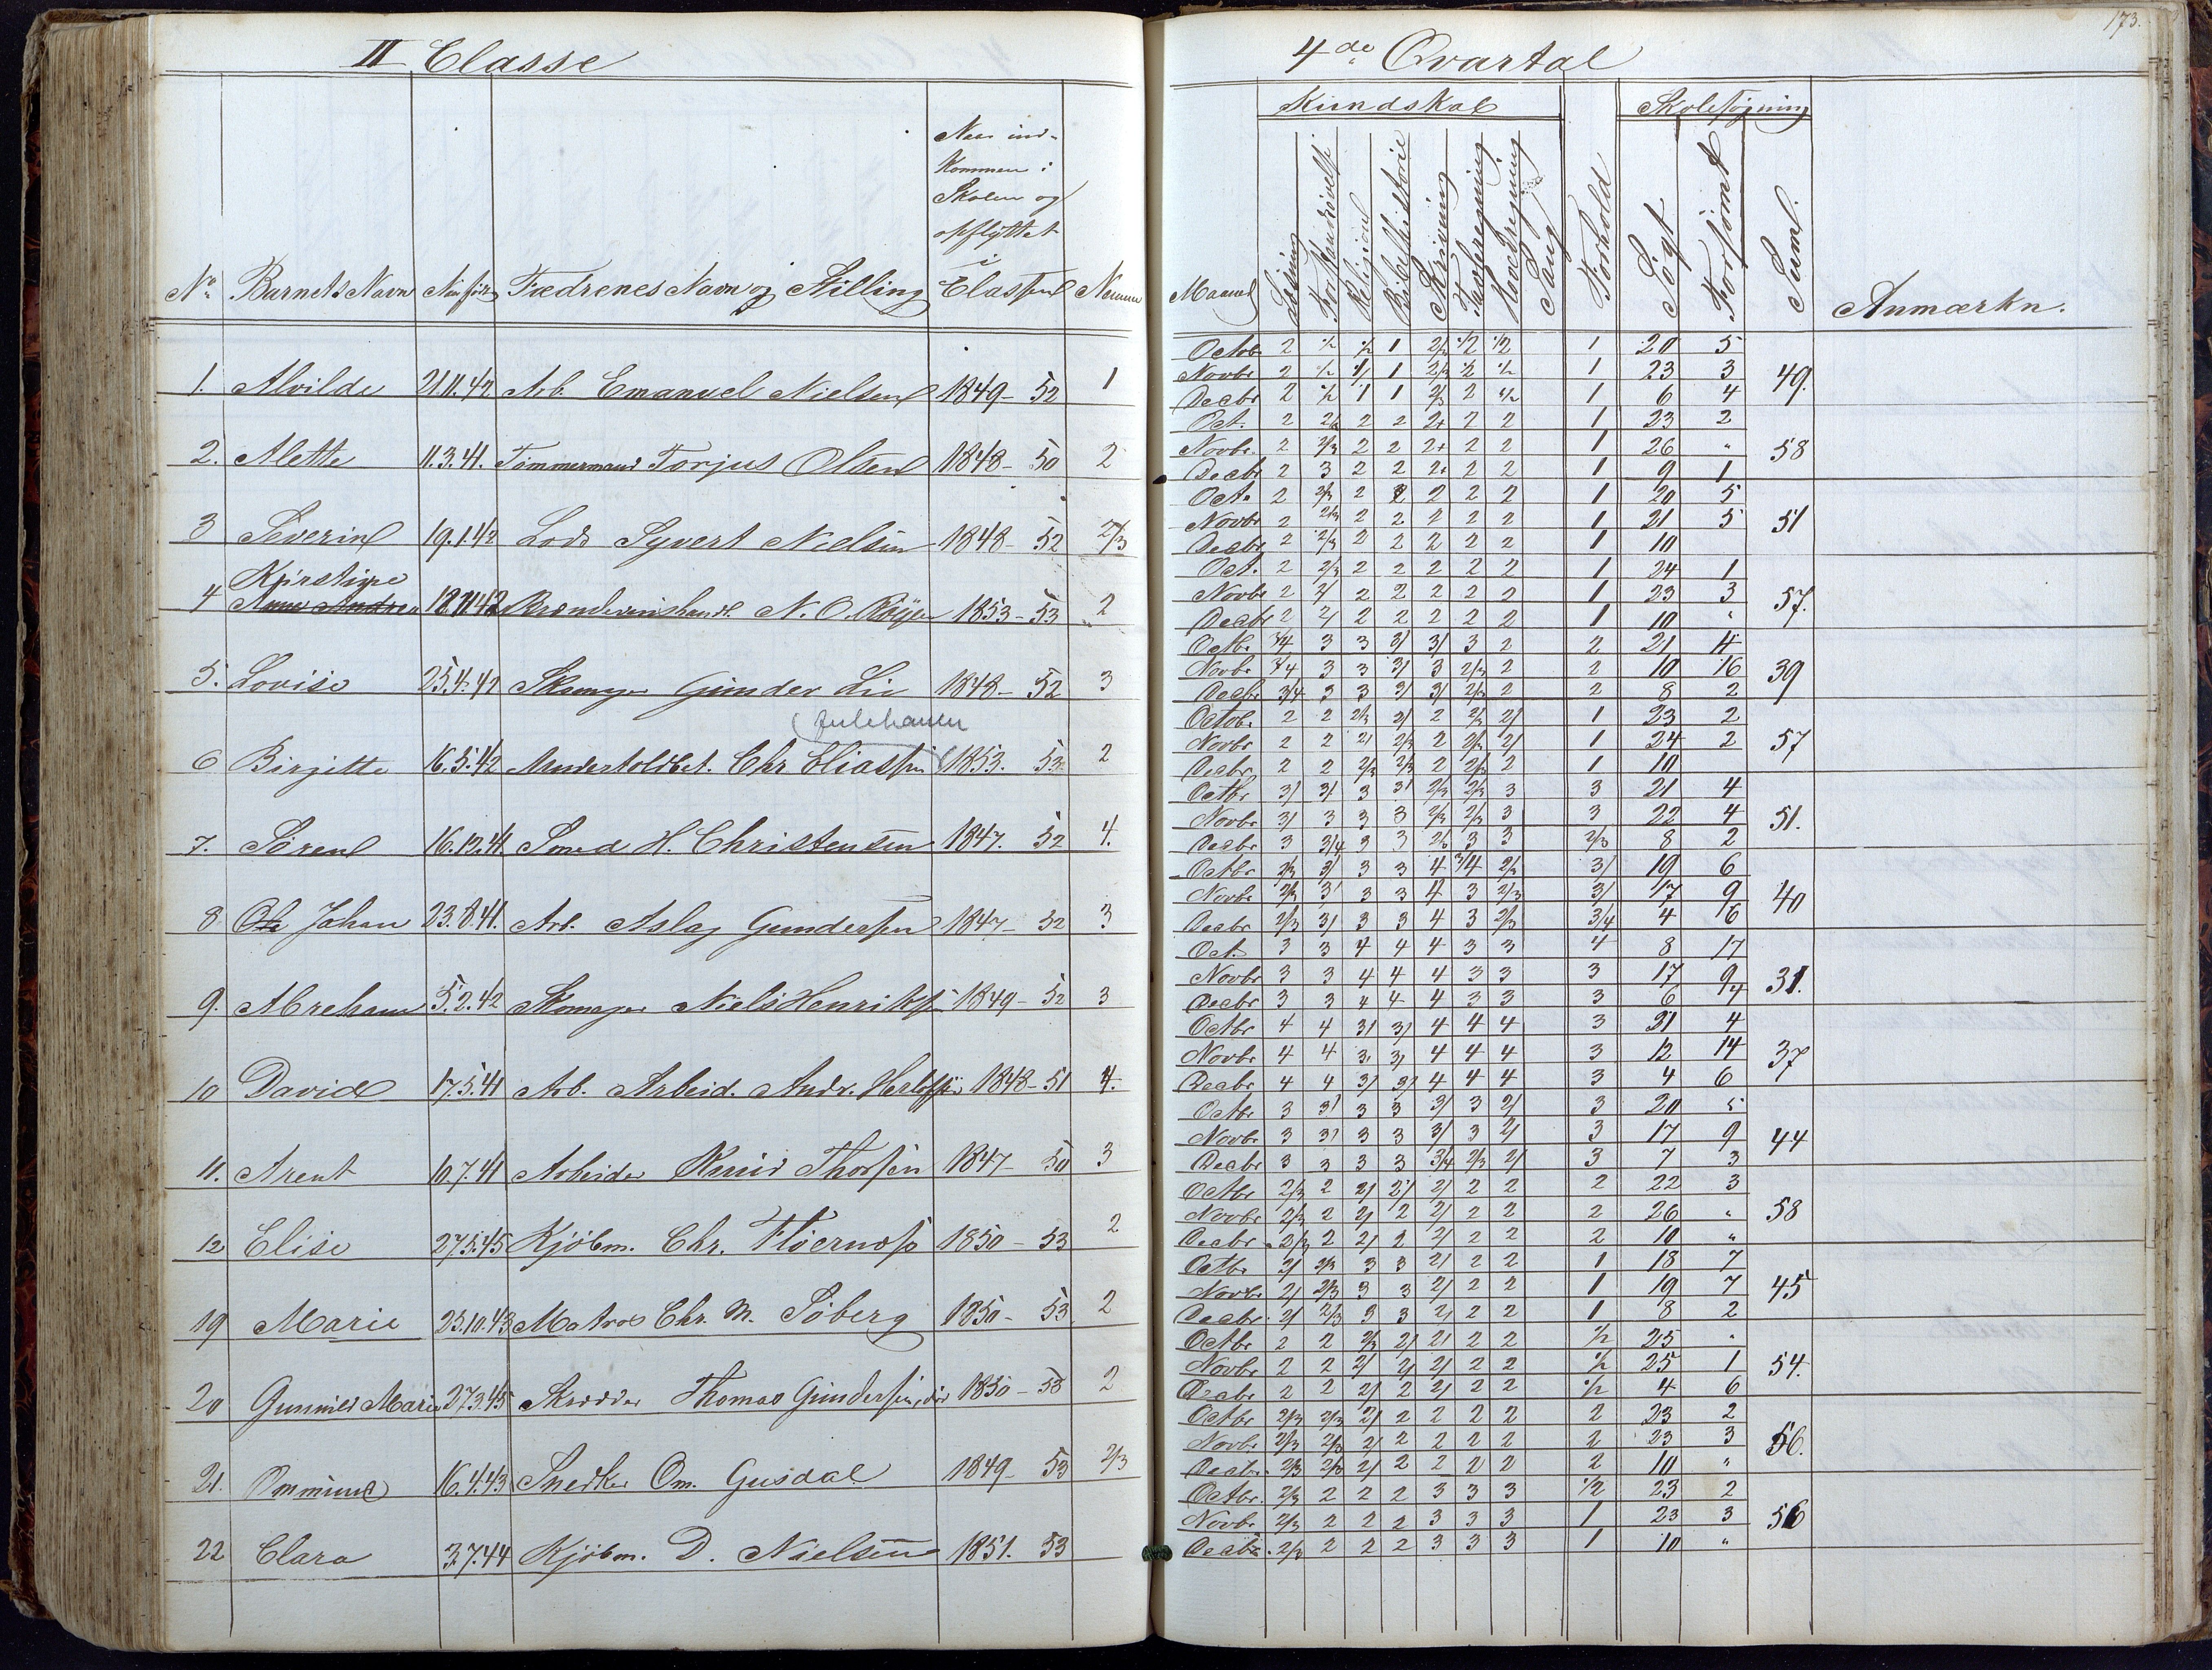 173.
II Classe
4de Qvartal
Kundskab
Skolesøgning
Naar ind-
kommen i
Skolen og
opflyttet
i
No Barnets Navn Naar født Fædrenes Navn og Stilling Classen Numer
Maaned Læsning Religion Bibelhistorie Skrivning Tavleregning Hovedregning Sang Forhold Søgt Forsømt Suml. Anmærkn.
1. Alvilde 21.11.42 Arb. Emanuel Nielsen 1849- 52 1
Octob. 2 1/2 1/2 1 2/3 1/2 1/2 1 20 5
Novbr 2 1/2 1/ 1 2/3 1/2 1/2 1 23 3 49.
Decbr 2 1/2 1 1 2/3 2 1/2 1 6 4
2. Alette 11.3.41. Tømmermand Torjus Olsen 1848- 50 2
Oct. 2 2/3 2 2 2+ 2 2 1 23 2
Novbr. 2 2/3 2 2 2+ 2 2 1 26 " 58
Decbr 2 3 2 2 2+ 2 2 1 9 1
3 Severin 19.1.42 Lods Syvert Nielsen 1848- 52 2/3
Oct. 2 2/3 2 2 2 2 2 1 20 5
Novbr 2 2/3 2 2 2 2 2 1 21 5 51
Decbr 2 2/3 2 2 2 2 2 1 10
Kirstine
4 Anne Andrea 18.11.42 Brændevinshandl. N. O. 1853-53 2
Oct. 2 2/3 2 2 2 2 2 1 24 1
Novbr 2 2/ 2 2 2 2 2 1 23 3 57.
Decbr 2 2/ 2 2 2 2 2 1 10 "
5. Lovise 25.4.42 Skomager Gunder Lie 1848- 52 3
Octbr 3/4 3 3 3/ 3/ 3 2 2 21 4
Novbr 3/4 3 3 3/ 3 2/3 2 2 10 16 39
Decbr 3/4 3 3 3/ 3/ 2/3 2 2 8 2
6 Birgitte 16.5.42 Undertoldbet. Chr Eliassen 1853. 53 2
Octob. 2 2 2/3 2/ 2 2/3 2/ 1 23 2
Novbr 2 2 2/ 2/3 2 2/3 2/ 1 24 2 57
Decbr 2 2 2/3 2/3 2 2/3 2 1 10
7. Søren 16.12.41. Smed H. Christensen 1847. 52 4.
Octbr 3/ 3/ 3 3/ 2/3 2/3 3 3 21 4
Novbr 3/ 3 3 3 2/3 2/3 3 3 22 4 51.
Decbr 3 3/4 3 3 2/3 3 3 2/3 8 2
8 Ole Johan 23.8.41. Arb. Aslag Gundersen 1847- 52 3
Octbr 2/3 3/ 3 3 4 3/4 2/3 3/ 19 6
Novbr 2/3 3/ 3 3 4 3 2/3 3/ 17 9 40
Decbr 2/3 3/ 3 3 4 3 2/3 3/4 4 6
9. Abraham 5.2.42 Skomager Niels Henriksen 1849- 52 3
Oct. 3 3 4 4 4 3 3 4 8 17
Novbr 3 3 4 4 4 3 3 3 17 9 31.
Decbr 3 3 4 4 4 3 3 3 6 4
10 David 17.5.41 Arb. Arbeid. Andr. 1848-51 4.
Octbr 4 4 3/ 3/ 4 4 4 3 21 4
Novbr 4 4 3/ 3/ 4 4 4 3 12 14 37
Decbr 4 4 3/ 3/ 4 4 4 3 4 6
11. Arent 10.7.41 Arbeider Knud Thorsen 1847- 50 3
Octbr 3 3/ 3 3 3/ 3 2/ 3 20 5
Novbr 3 3/ 3 3 3/ 3 2/ 3 17 9 44
Decbr 3 3 3 3 3/4 2/3 2/ 3 7 3
12 Elise 27.5.45 Kjøbm. Chr. 1850- 53 2
Octbr 2/3 2 2/ 2/ 2/ 2 2 2 22 3
Novbr 2/3 2 2/ 2 2/ 2 2 2 26 " 58
Decbr 2/3 2 2/ 2 2/ 2 2 2 10 "
19 Marie 25.10.43 Matros Chr. M. Søberg 1850- 53 2
Octbr 2/ 2/3 3 3 2/ 2 2 1 18 7
Novbr. 2/ 2/3 3 3 2/ 2 2 1 19 7 45
Decbr. 2/ 2/3 3 3 2/ 2 2 1 8 2
20 Gunnild Marie 27.3.45 Skrædder Thomas Gundersen, 1850- 53 2
Octbr 2 2 2/3 2/ 2/ 2 2 1/2 25 "
Novbr 2 2 2/ 2/ 2/ 2 2 1/2 25 1 54.
Decbr 2 2 2/ 2 2/ 2 2 1/2 4 6
21. Ommund 16.4.43 Snedker Om. Gusdal 1849- 53 2/3
Octbr 2/3 2/3 2/ 2 2 2 2 2 23 2
Novbr. 2/3 2/3 2/ 2 2 2 2 2 23 3 56.
Decbr. 2/3 2/3 2/ 2 2 2 2 2 10 "
22 Clara 3.7.44 Kjøbm. D. Nielsen 1851. 53
Octbr. 2/3 2 2 2 3 3 3 1/2 23 2
Novbr 2/3 2 2 2 3 3 3 1 23 3 56
Decbr. 2/3 2 2 2 3 3 3 1 10 "